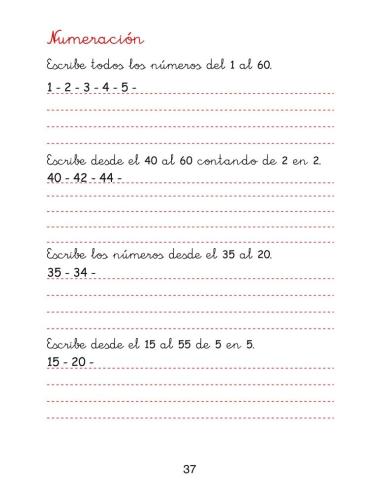 Numeración
Escribe todos los números del 1 al 60.
1 - 2 - 3 - 4 - 5 -
Escribe desde el 40 al 60 contando de 2 en 2.
40 - 42 - 44 -
Escribe los números desde el 35 al 20.
35 - 34 -
Escribe desde el 15 al 55 de 5 en 5.
15 - 20 -
37